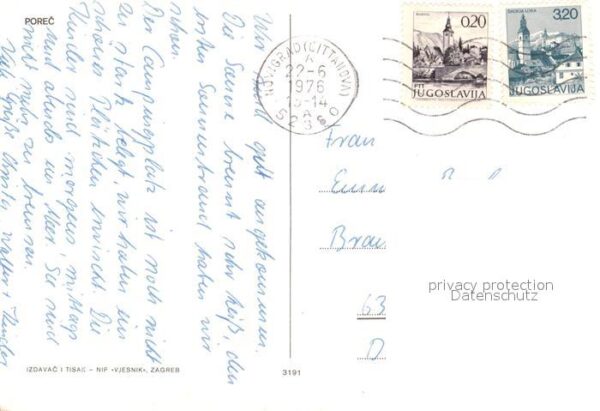 POREČ
Wir sind gut angekommen.
Die Sonne brennt sehr heiß, den
ersten Sonnenbrand haben wir
schon.
Der Campingplatz ist noch nicht
zu stark belegt, wir haben ein
schönes Plätzchen erwischt. Die
Kinder sind morgens, mittags
und abends im Meer, sie sind
nicht mehr zu bremsen.
Viele Grüße Christa, Walter + Kinder
IZDAVAČ I TISAK – NIP »VJESNIK«, ZAGREB
3191
NOVIGRAD (CITTANOVA)
22-6
1976
13-14
A
52360
0,20
PTT JUGOSLAVIJA
ŠKOFJA LOKA
3,20
JUGOSLAVIJA
Frau
Emm
Brau
63
D
privacy protection
Datenschutz